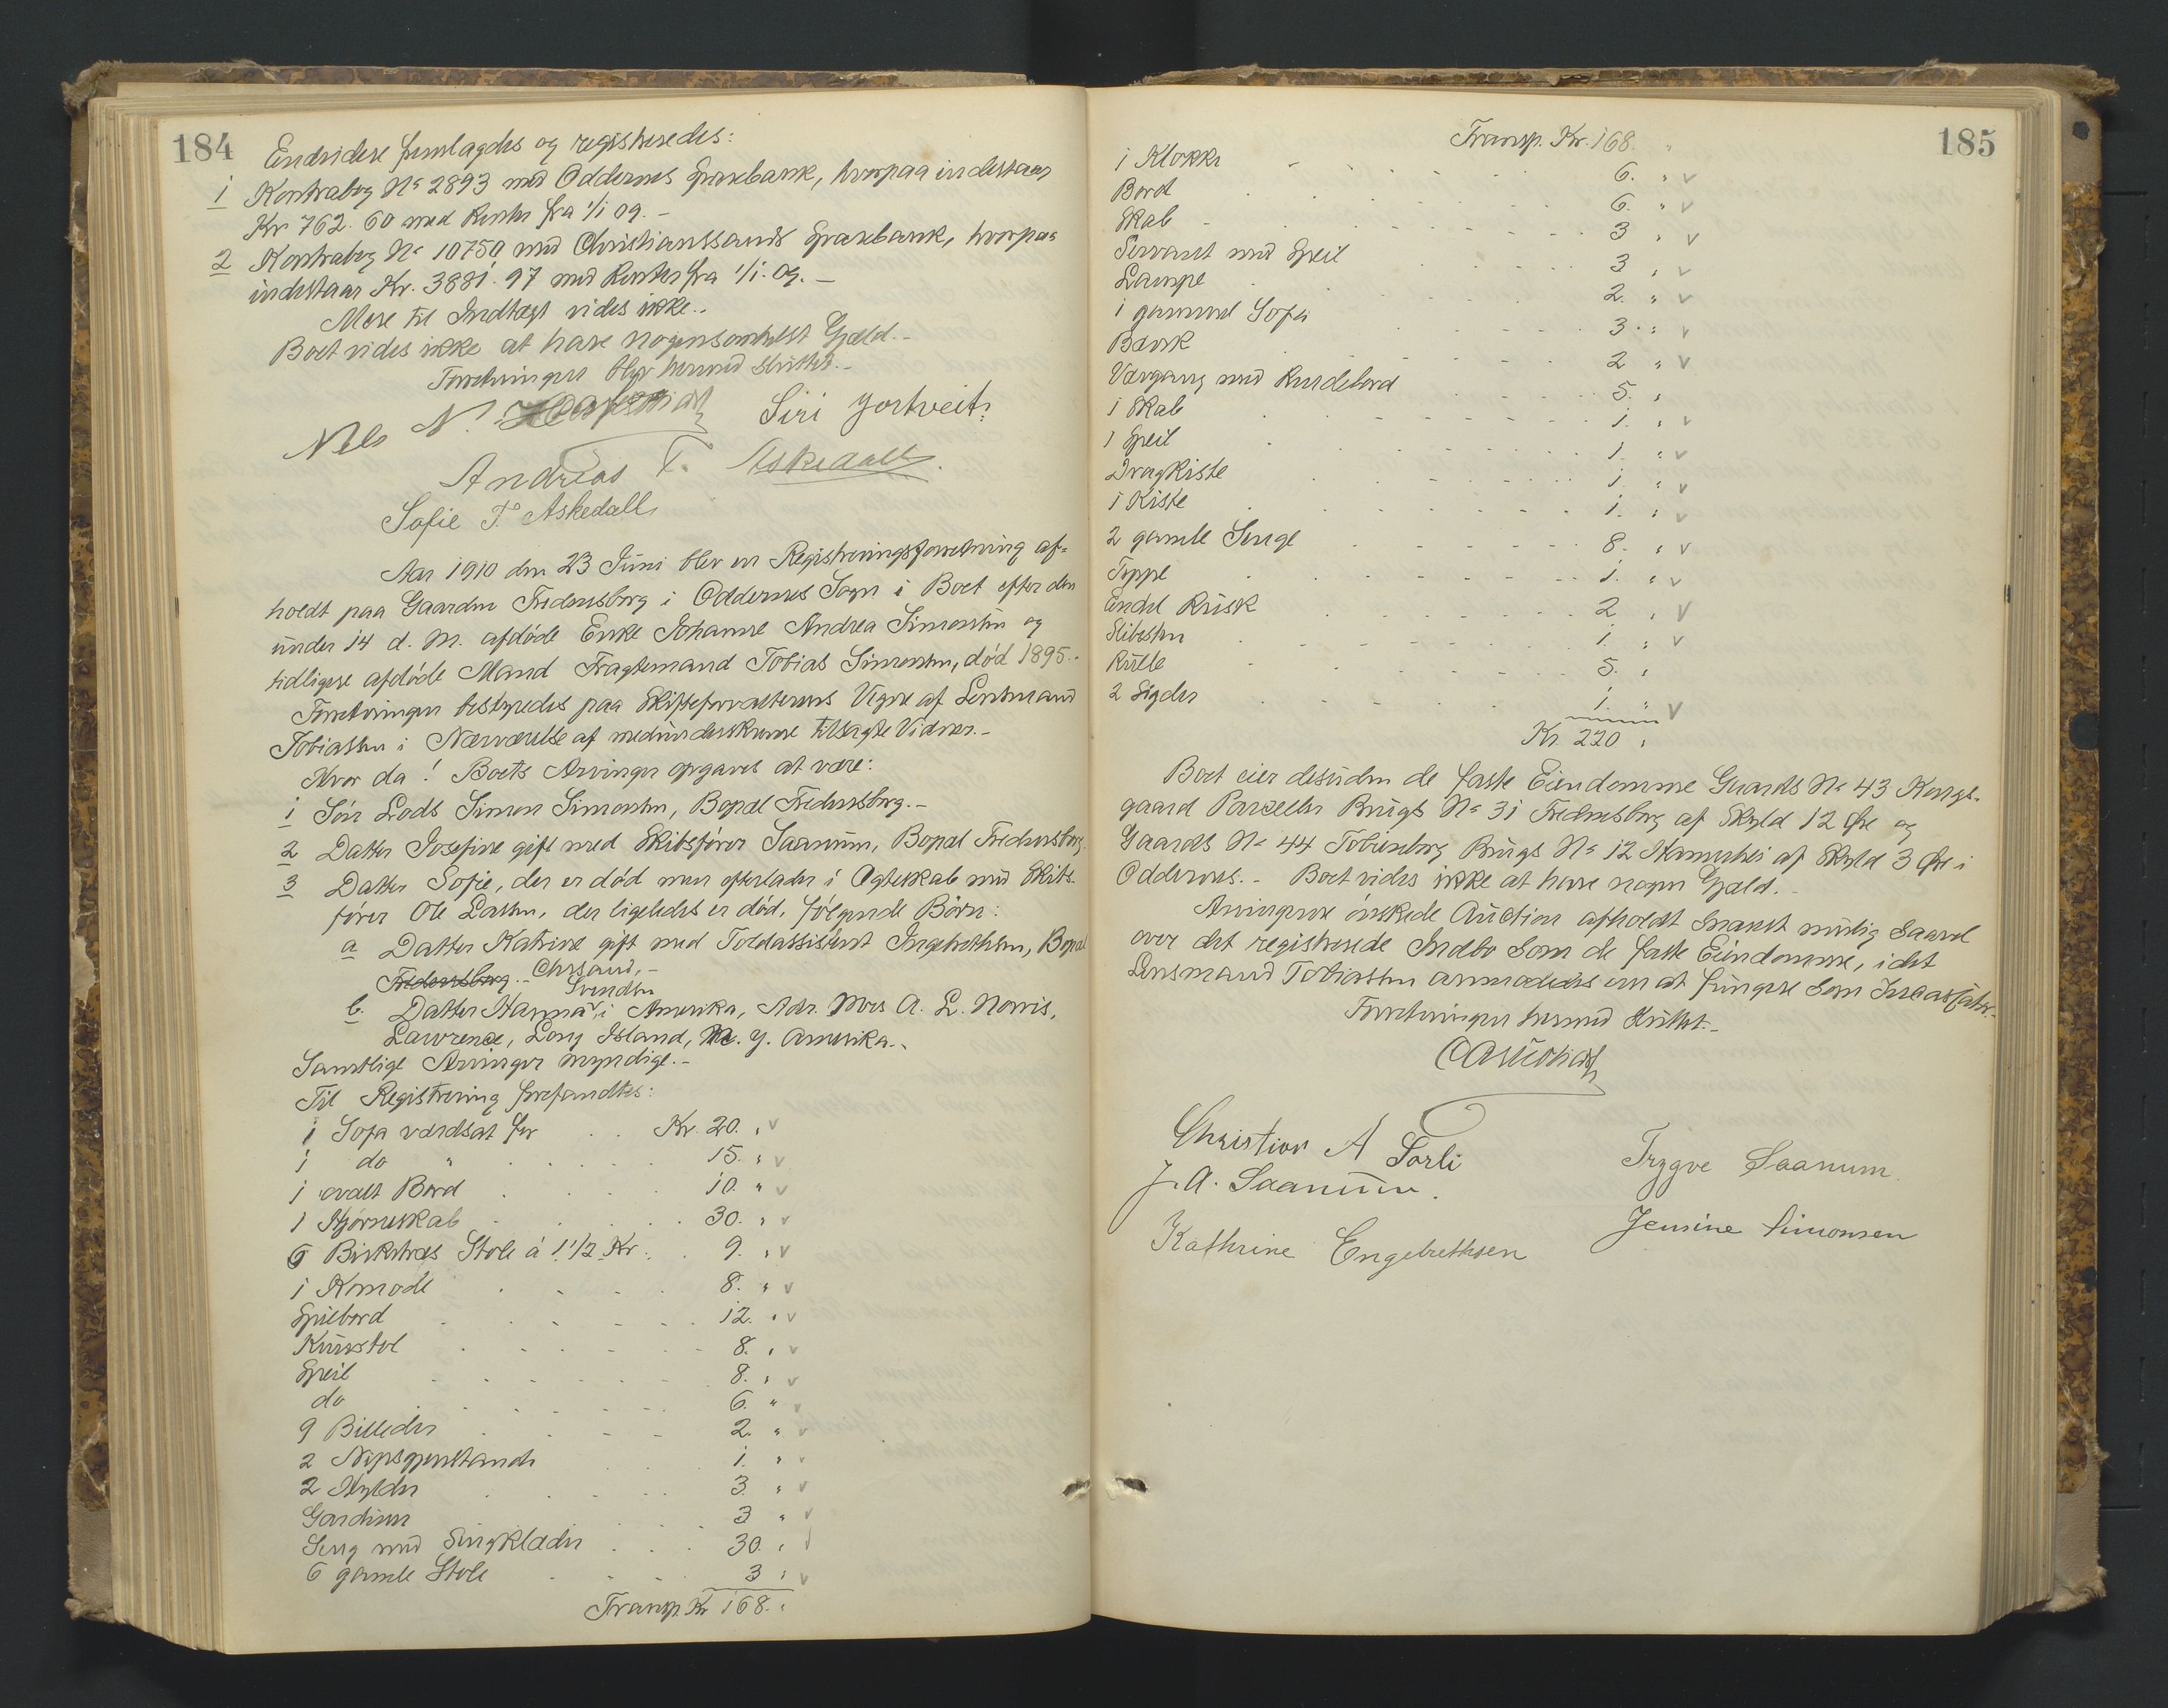 184
Endvidere fremlagdes og registreredes:
1 Kontrabog No 2893 med Oddernes Sparebank, hvorpaa indestaar
Kr. 762. 60 med Renter fra 1/1 09. -
2 Kontrabog No 10750 med Christianssands Sparebank, hvorpaa
indestaar Kr. 3881. 97 med Renter fra 1/1. 09. -
Mere til Indtægt vides ikke. -
Boet vides ikke at have nogensomhelst Gjæld. -
Forretningen blev hermed sluttet. -
Nels N. Siri Jortveit
Andreas T. Askedall
Sofie T. Askedall
Aar 1910 den 23 Juni blev en Registreringsforretning af=
holdt paa Gaarden Fredensborg i Oddernes Sogn i Boet efter den
under 14 d. M. afdøde Enke Johanne Andrea Simonsen og
tidligere afdøde Mand Fragtemand Tobias Simonsen, død 1895. -
Forretningen bestyredes paa Skifteforvalterens Vegne af Lensmand
Tobiassen i Nærværelse af medunderskrevne tilsagte Vidner. -
Hvor da! Boets Arvinger opgaves at være:
1 Søn Lods Simon Simonsen, Bopæl Fredensborg. -
2 Datter Josefine gift med Skibsfører Saanum, Bopæl Fredensborg
3 Datter Sofie, der er død men efterlader i Ægteskab med Skibs-
fører Ole Larsen, der ligeledes er død, følgende Børn:
a Datter Katrine gift med Toldassistent Ingebrethsen, Bopæl
Fredensborg. - Chrsand, -
b. Datter Hanna Svendsen i Amerika, Adr. Mrs A. L. Norris,
Lawrence, Long Island, N. Y. Amerika. -
Samtlige Arvinger myndige. -
Til Registrering forefandtes:
1 Sofa værdsat for . . Kr. 20. " v
1 do " . . . . 15. " v
1 ovalt Bord . . . . 10. " v
1 Hjørneskab . . . . 30. " v
6 Birketræs Stole á 1 1/2 Kr. . 9. " v
1 Komode . . . . 8. " v
Spilebord . . . . . 12. " v
Kurvstol . . . . . 8. " v
Speil . . . . . 8. " v
do . . . . . 6. " v
9 Billeder . . . . 2. " v
2 Nipsgjenstande . . . 1. " v
2 Hylder . . . . 3. " v
Gardiner . . . . 3 " v
Seng med Sengklæder . . . 30. " v
6 gamle Stole . . . 3 " v
Transp. Kr 168. "
185
Transp. Kr. 168. "
1 Klokke - . . . . 6. " v
Bord . . . . . 6. " v
Skab . . . . . 3 " v
Servant med Speil . . . . 3 " v
Lampe . . . . . 2. " v
1 gammel Sofa . . . . 3. " v
Bænk . . . . . 2 " v
Vævgang med Rundebord . . . 5. "
1 Skab . . . . . 1. " v
1 Speil . . . . . 1. " v
Dragkiste . . . . . 1. " v
1 Kiste . . . . . 1. " v
2 gamle Senge . . . . 8. " v
Teppe . . . . . 1. " v
Endel Rusk . . . . 2 " v
Slibesten . . . . . 1. " v
Rulle . . . . . 5. "
2 Sigder . . . . . 1. " v
Kr. 220 "
Boet eier desuden de faste Eiendomme Gaards No 43 Kongs-
gaard Parcellen Brugs No 31 Fredensborg af Skyld 12 Øre og
Gaards No 44 Tobienborg Brugs No 12 af Skyld 3 Øre i
Oddernes. - Boet vides ikke at have nogen Gjæld. -
Arvingerne ønskede Auction afholdt snarest mulig saavel
over det registrerede Indbo som de faste Eiendomme, idet
Lensmand Tobiassen anmodedes om at fungere som Incassator. -
Forretningen hermed sluttet. -
Christian A Sørli
Trygve Saanum
J. A. Saanum.
Jensine Simonsen
Kathrine Engebrethsen